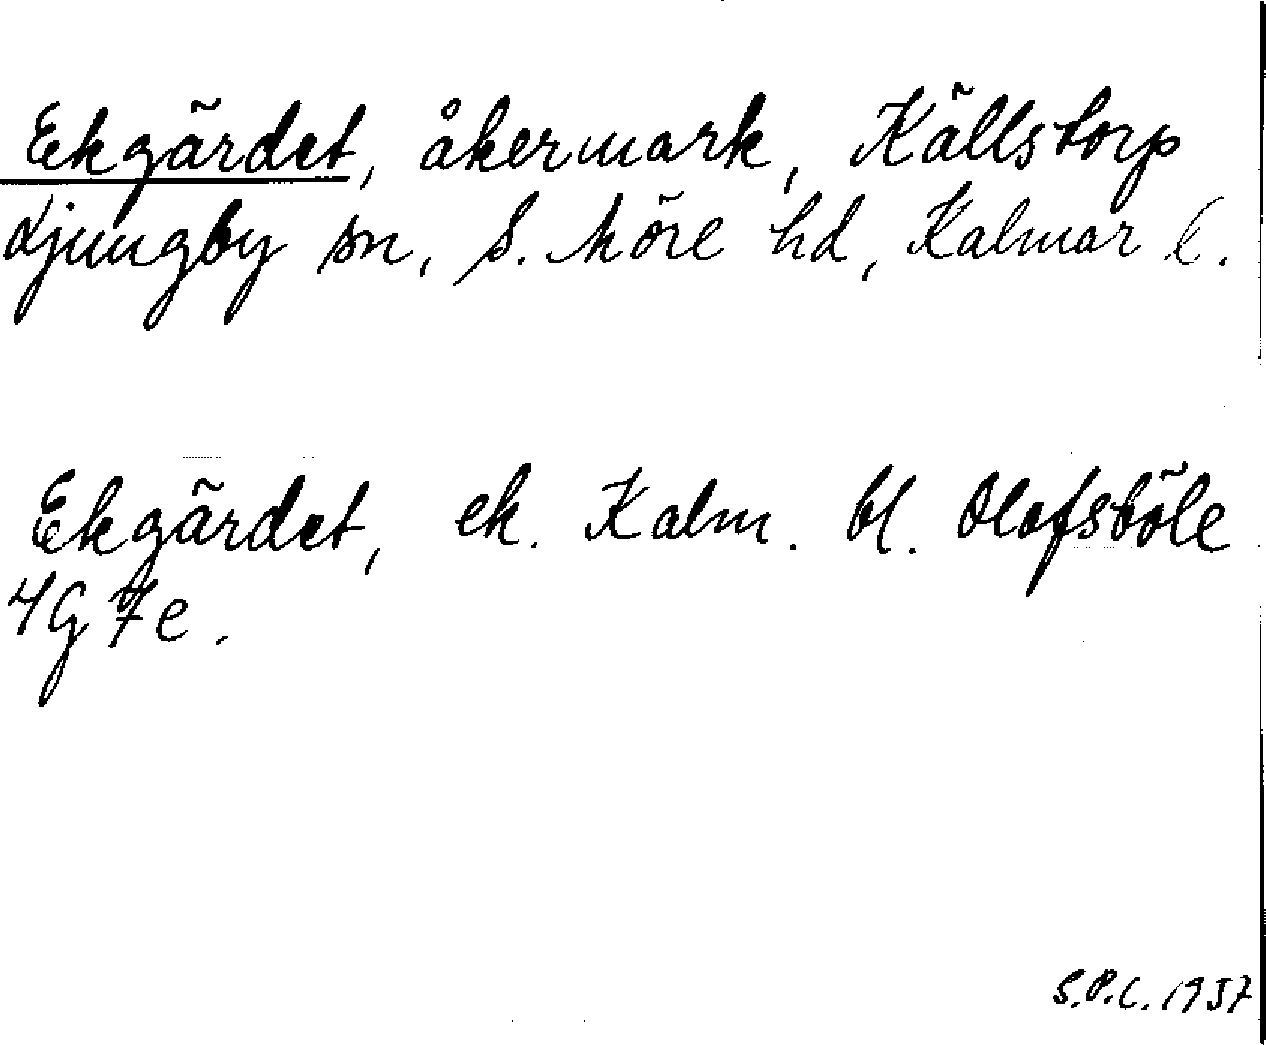 Ekgärdet, åkermark, Källstorp
Ljungby sn, S. Möre hd, Kalmar l.
Ekgärdet, ek. Kalm. bl. Olofsböle
4G7e.
S.P.C. 1957